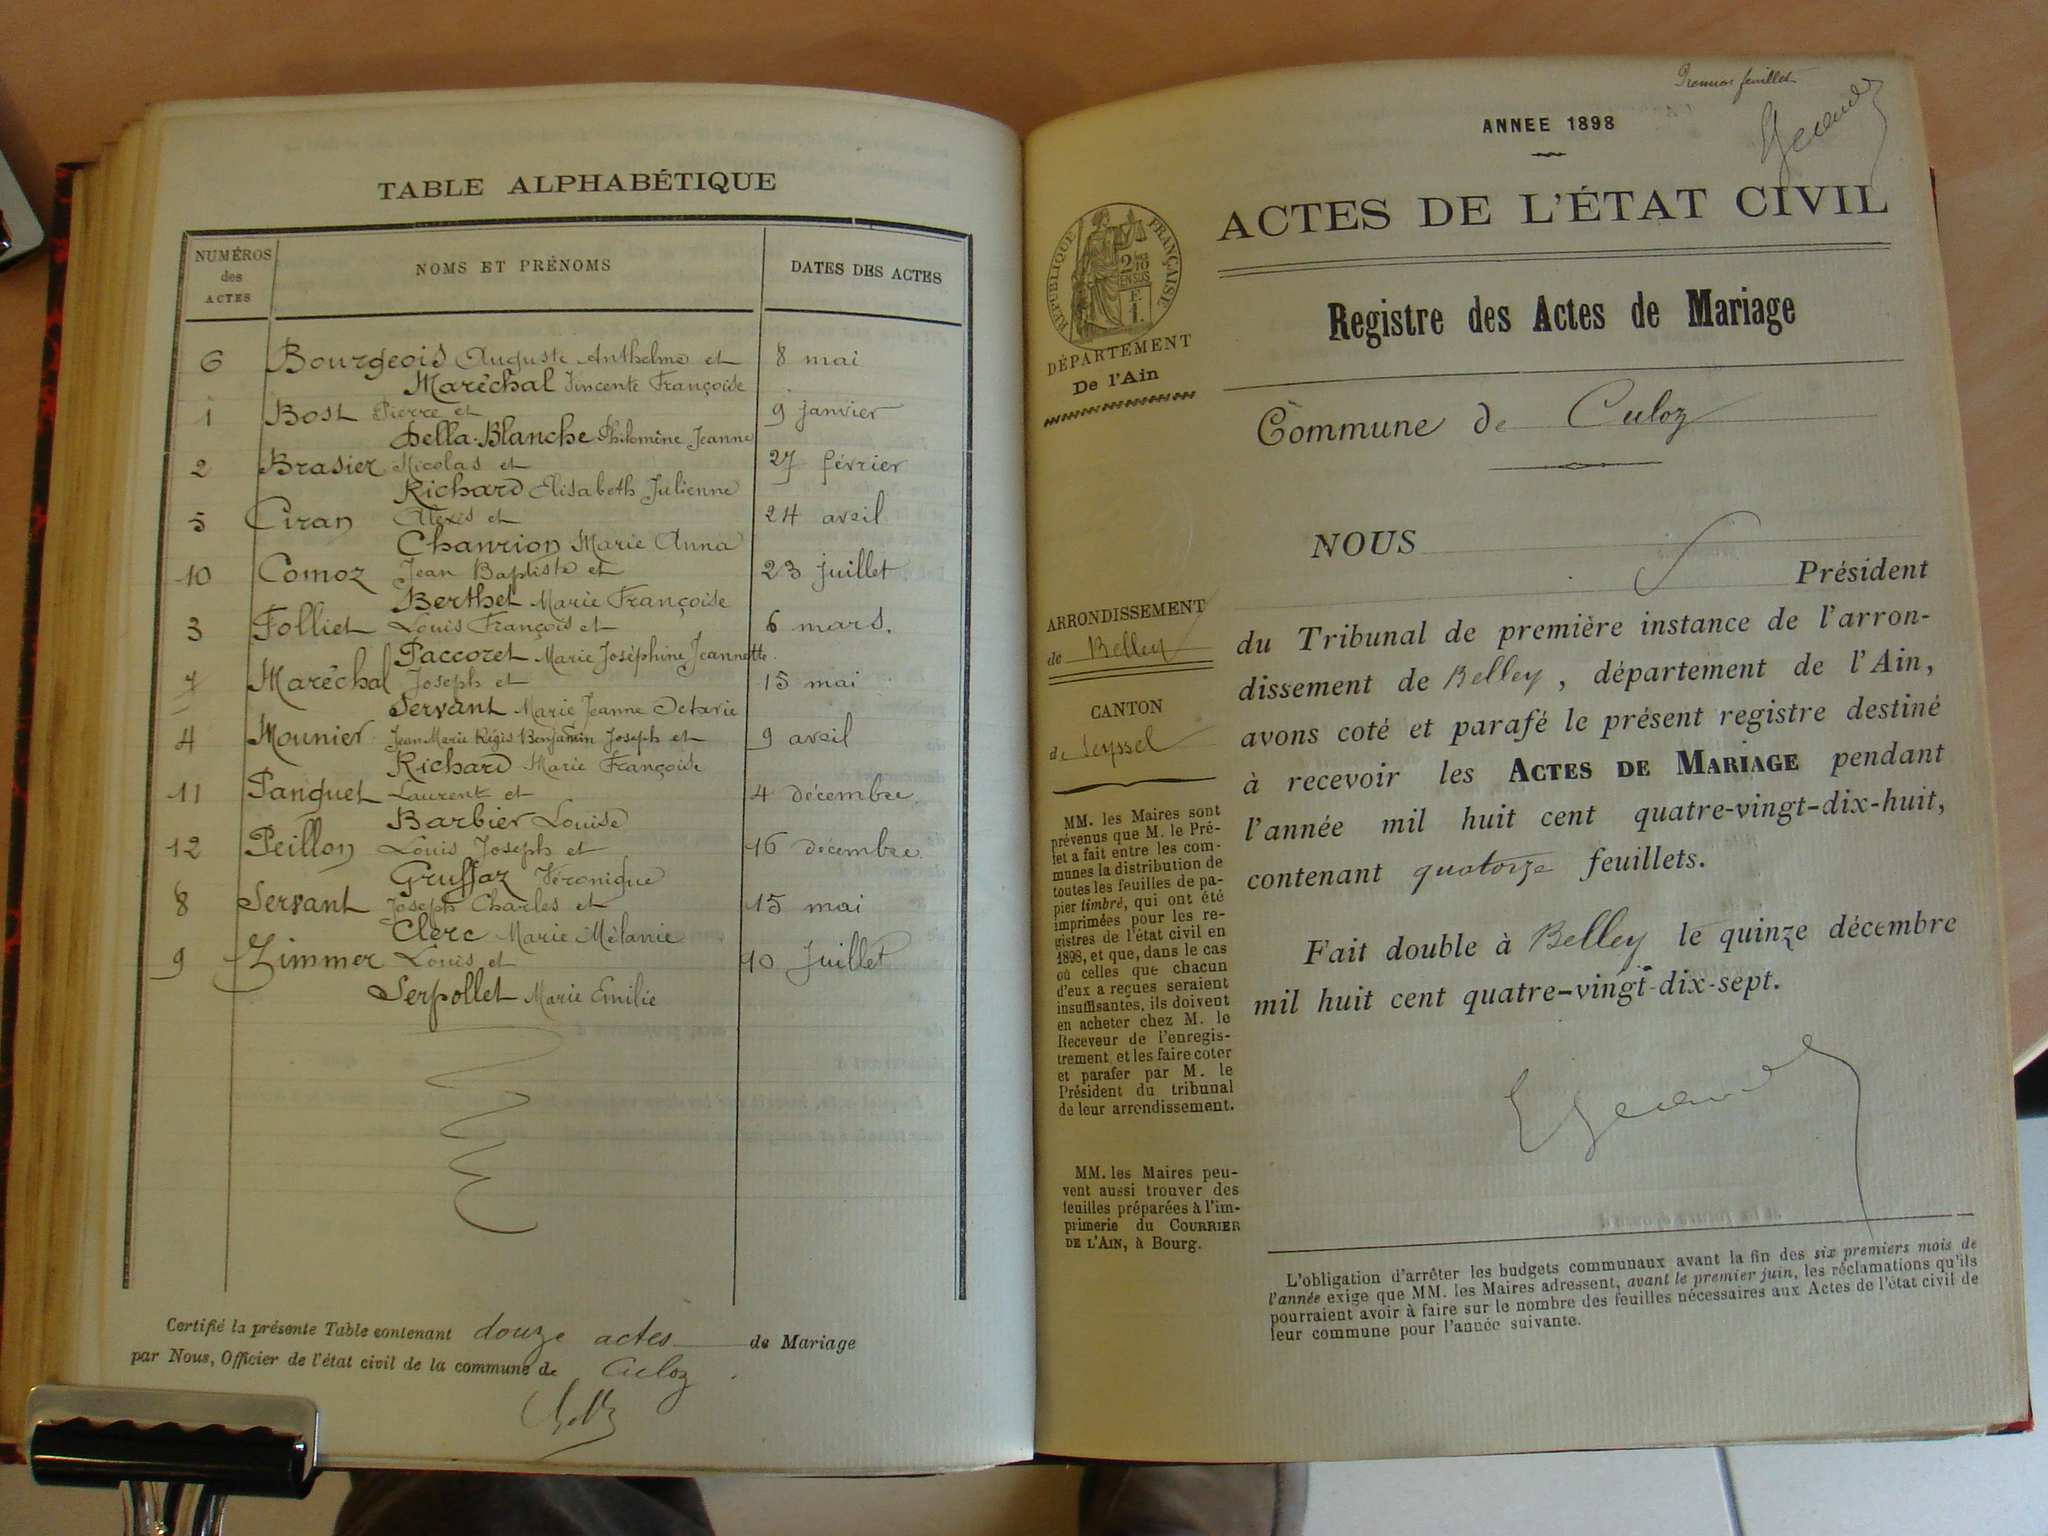 TABLE ALPHABÉTIQUE
NUMÉROS des ACTES
NOMS ET PRÉNOMS
DATES DES ACTES
6 Bourgeois Auguste Anthelme et 8 mai
Maréchal Vincente Françoise
1 Bost Pierre et 9 janvier
Della-Blanche Philomène Jeanne
2 Brasier Nicolas et 27 février
Richard Elisabeth Julienne
5 Ciran Alexis et 24 avril
Chanrion Marie Anna
10 Comoz Jean Baptiste et 23 juillet
Berthet Marie Françoise
3 Folliet Louis François et 6 mars.
Paccoret Marie Joséphine Jeannette.
7 Maréchal Joseph et 15 mai
Servant Marie Jeanne Octavie
4 Mounier Jean Marie Régis Benjamin Joseph et 9 avril
Richard Marie Françoise
11 Panguet Laurent et 4 décembre.
Barbier Louise
12 Peillon Louis Joseph et 16 décembre.
Gruffaz Véronique
8 Servant Joseph Charles et 15 mai
Clerc Marie Mélanie
9 Zimmer Louis et 10 Juillet
Serpollet Marie Emilie
Certifié la présente Table contenant douze actes de Mariage
par Nous, Officier de l'état civil de la commune de Culoz.
Premier feuillet
ANNEE 1898
ACTES DE L'ÉTAT CIVIL
RÉPUBLIQUE FRANÇAISE
2/10
EN SUS
F.
1.
DÉPARTEMENT
De l'Ain
Registre des Actes de Mariage
Commune de Culoz
ARRONDISSEMENT
de Belley
CANTON
de Seyssel
MM. les Maires sont
prévenus que M. le Pré-
fet a fait entre les com-
munes la distribution de
toutes les feuilles de pa-
pier timbré, qui ont été
imprimées pour les re-
gistres de l'état civil en
1898, et que, dans le cas
où celles que chacun
d'eux a reçues seraient
insuffisantes, ils doivent
en acheter chez M. le
Receveur de l'enregis-
trement, et les faire coter
et parafer par M. le
Président du tribunal
de leur arrondissement.
MM. les Maires peu-
vent aussi trouver des
feuilles préparées à l'im-
primerie du COURRIER
DE L'AIN, à Bourg.
NOUS
Président
du Tribunal de première instance de l'arron-
dissement de Belley, département de l'Ain,
avons coté et parafé le présent registre destiné
à recevoir les ACTES DE MARIAGE pendant
l'année mil huit cent quatre-vingt-dix-huit,
contenant quatorze feuillets.
Fait double à Belley le quinze décembre
mil huit cent quatre-vingt-dix-sept.
L'obligation d'arrêter les budgets communaux avant la fin des six premiers mois de
l'année exige que MM. les Maires adressent, avant le premier juin, les réclamations qu'ils
pourraient avoir à faire sur le nombre des feuilles nécessaires aux Actes de l'état civil de
leur commune pour l'année suivante.